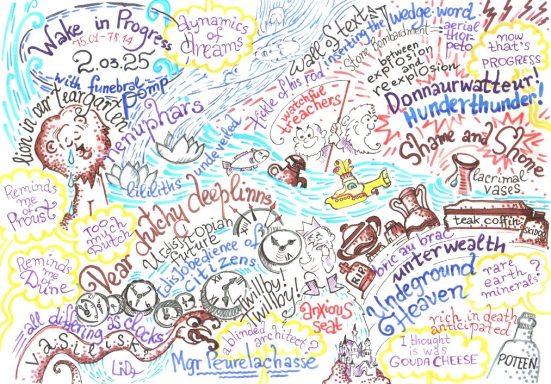 Wake in Progress
75.01-78.14
2.03.25
with funebral
pomp
dynamics of
dreams
Wall S text
inserting the
wedge-word
Stone Bombardment =
aerial
thorpeto
between
explosion
and
reexplosion
now
that's
PROGRESS
Donnaurwatteur!
Hunderthunder!
tickle of his rod
watchful
treachers
lion in our teargarten
Nemuphars
liliths undeveiled
Shame and Shone
lacrimal
vases
teak coffin
SKIDOO
Reminds
me of
Proust
Too
much
Dutch
Dear dutchy deeplinns
Utdistopian
future
(dis)obedience of
citizens
Twillby!
Twillby!
RIP
boric au brac
unterwealth
Undeground
Heaven
rare
earth
minerals?
Reminds
me of
Dune
all differing as clocks
vasileisk
LiNa
a blinded architect?
Mgr Peurelachasse
anxious
seat
rich in death
anticipated
I thought
is was
GOUDA CHEESE
POTEEN